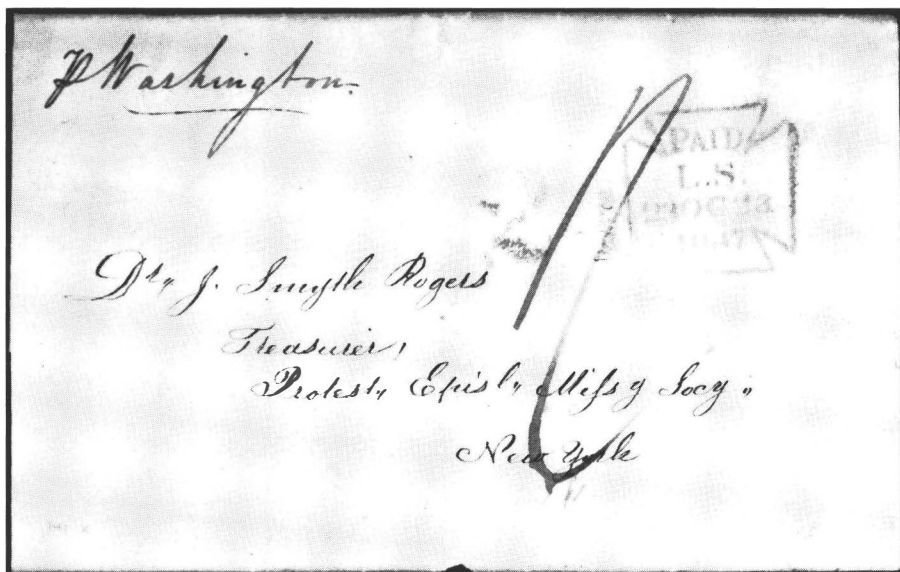 p Washington.
PAID
L.S.
22 OC 23
1847
Dr. J. Smyth Rogers
Treasurer,
Protest. Episl. Missy Socy.
New York